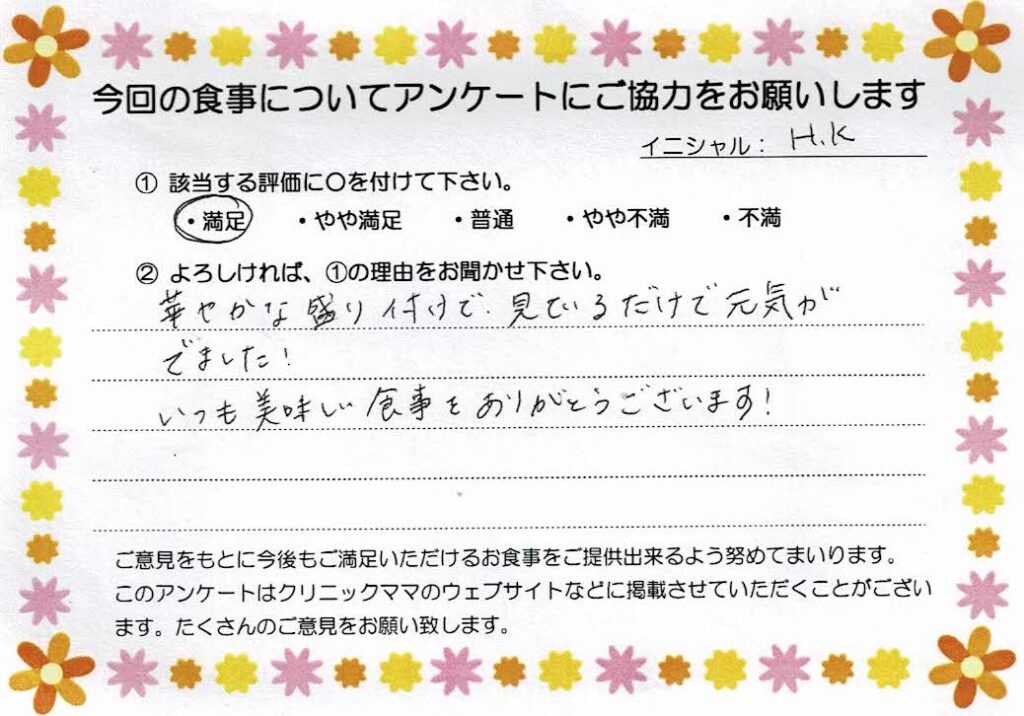 今回の食事についてアンケートにご協力をお願いします
イニシャル： H.K
① 該当する評価に〇を付けて下さい。
・満足 ・やや満足 ・普通 ・やや不満 ・不満
② よろしければ、①の理由をお聞かせ下さい。
華やかな盛り付けで、見ているだけで元気が
でました！
いつも美味しい食事をありがとうございます！
ご意見をもとに今後もご満足いただけるお食事をご提供出来るよう努めてまいります。
このアンケートはクリニックママのウェブサイトなどに掲載させていただくことがござい
ます。たくさんのご意見をお願い致します。